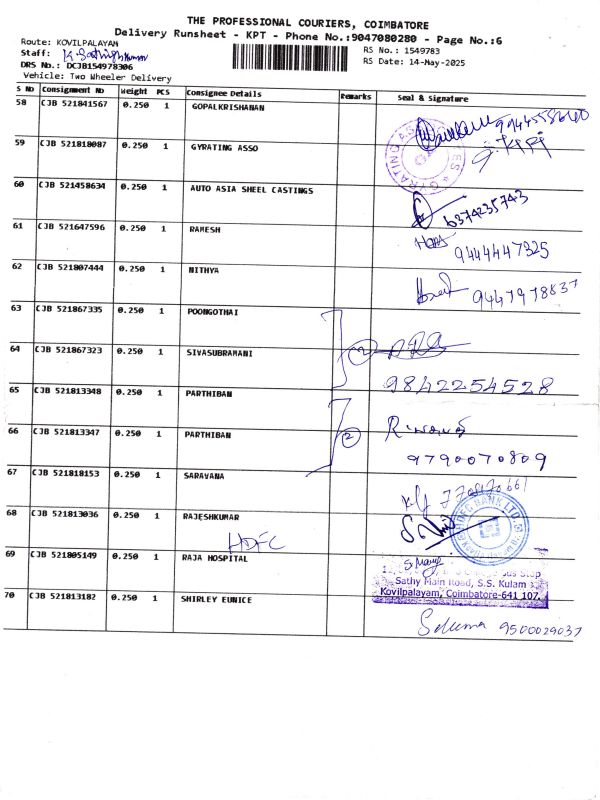 THE PROFESSIONAL COURIERS, COIMBATORE
Delivery Runsheet - KPT - Phone No.:9047080280 - Page No.:6
Route: KOVILPALAYAM
RS No.: 1549783
Staff: K. Sathish kumar
RS Date: 14-May-2025
DRS No.: DCJB154978306
Vehicle: Two Wheeler Delivery
S No Consignment No Weight PCS Consignee Details Remarks Seal & Signature
58 CJB 521841567 0.250 1 GOPALKRISHANAN
59 CJB 521818087 0.250 1 GYRATING ASSO
60 CJB 521458634 0.250 1 AUTO ASIA SHEEL CASTINGS 6374235743
61 CJB 521647596 0.250 1 RAMESH 9444447325
62 CJB 521807444 0.250 1 NITHYA 9447978837
63 CJB 521867335 0.250 1 POONGOTHAI
64 CJB 521867323 0.250 1 SIVASUBRAMANI 2
9842254528
65 CJB 521813348 0.250 1 PARTHIBAN
66 CJB 521813347 0.250 1 PARTHIBAN 2
9790070809
67 CJB 521818153 0.250 1 SARAVANA
68 CJB 521813036 0.250 1 RAJESHKUMAR
HDFC
69 CJB 521805149 0.250 1 RAJA HOSPITAL
Sathy Main Road, S.S. Kulam
Kovilpalayam, Coimbatore-641 107.
70 CJB 521813182 0.250 1 SHIRLEY EUNICE
9500029037